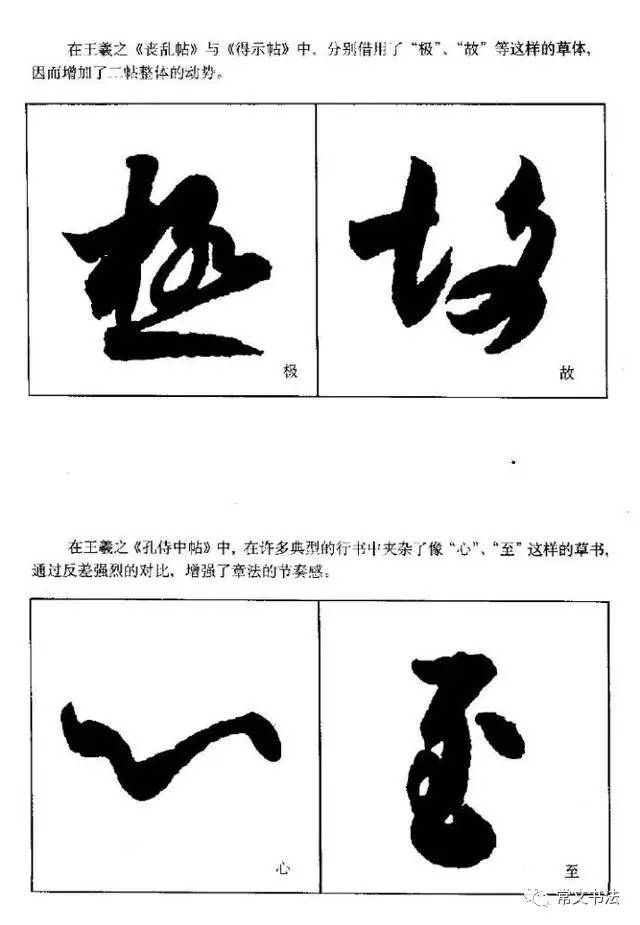 在王羲之《丧乱帖》与《得示帖》中，分别借用了“极”、“故”等这样的草体，
因而增加了二帖整体的动势。
極
故
极
故
在王羲之《孔侍中帖》中，在许多典型的行书中夹杂了像“心”、“至”这样的草书，
通过反差强烈的对比，增强了章法的节奏感。
心
至
心
至
常文书法